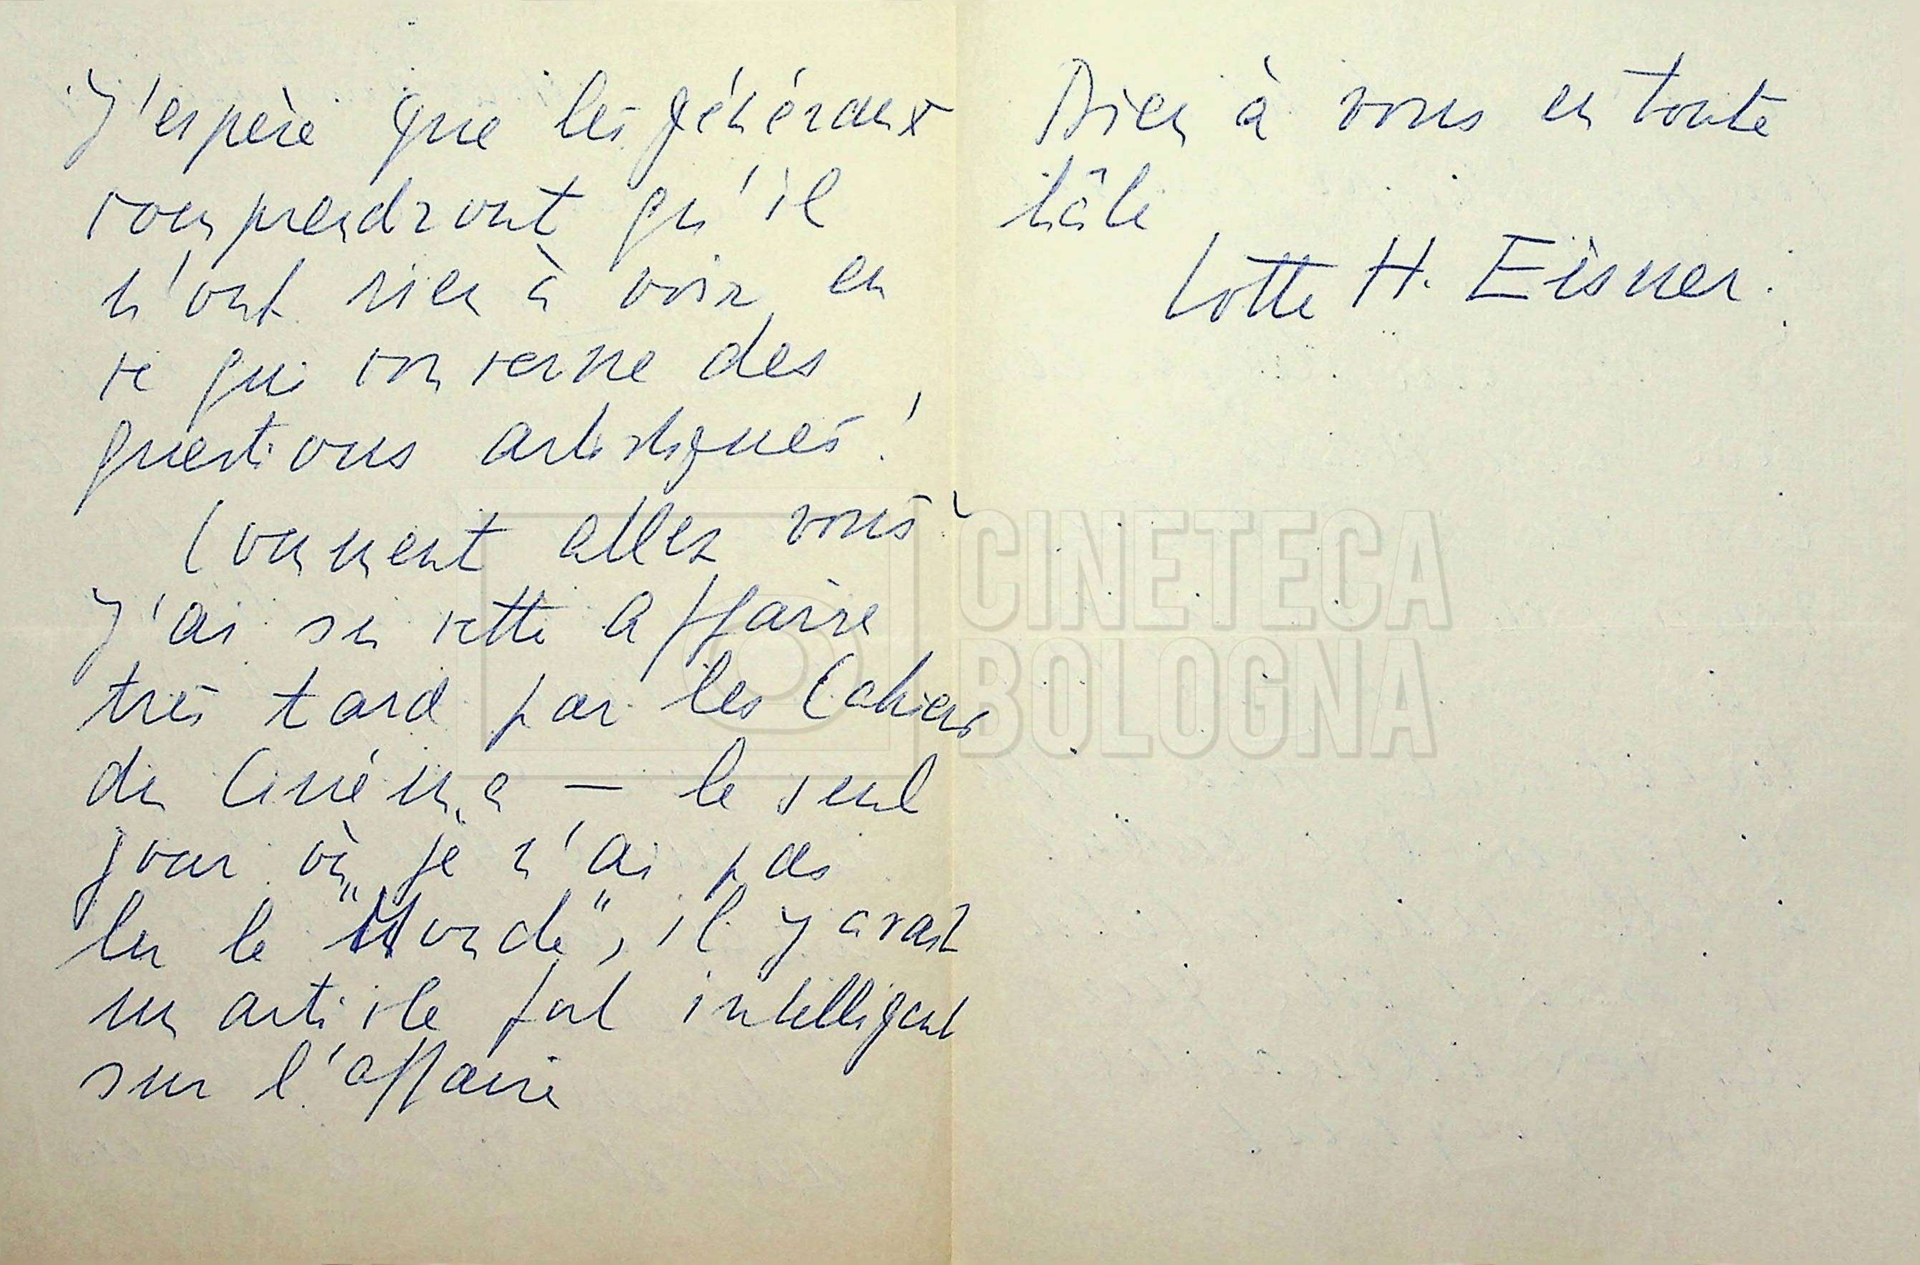 J'espère que les généraux
comprendront qu'il
n'ont rien à voir en
ce qui concerne des
questions artistiques!
Comment allez vous?
J'ai su cette affaire
très tard par les Cahiers
du Cinéma – le seul
jour où je n'ai pas
lu le "Monde", il y avait
un article fort intelligent
sur l'affaire
Bien à vous en toute
hâte
Lotte H. Eisner.
CINETECA
BOLOGNA